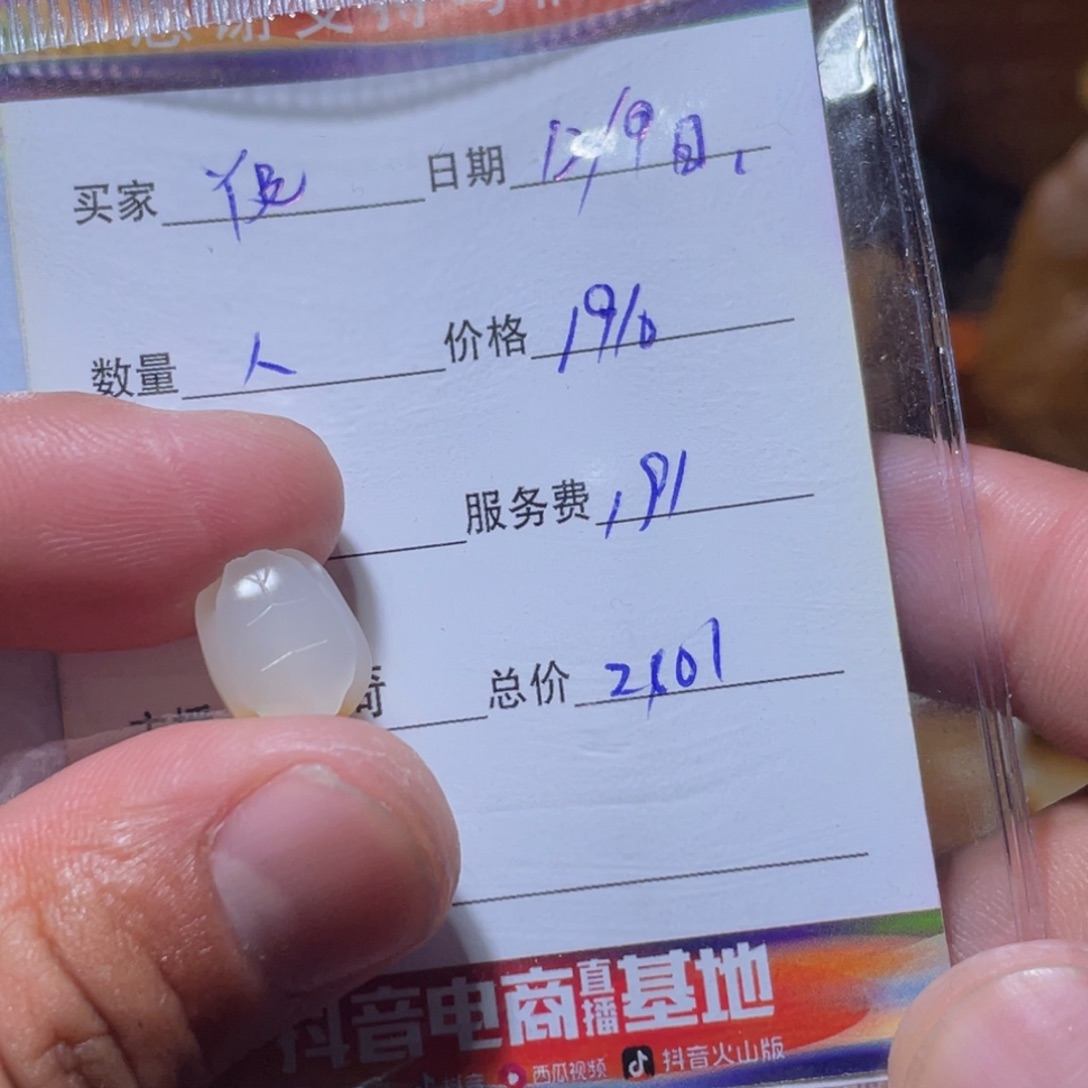 感谢支持
买家 日期 12/9日
数量 人 价格 1910
服务费 191
奇 总价 2101
抖音电商直播基地
抖音 西瓜视频 抖音火山版